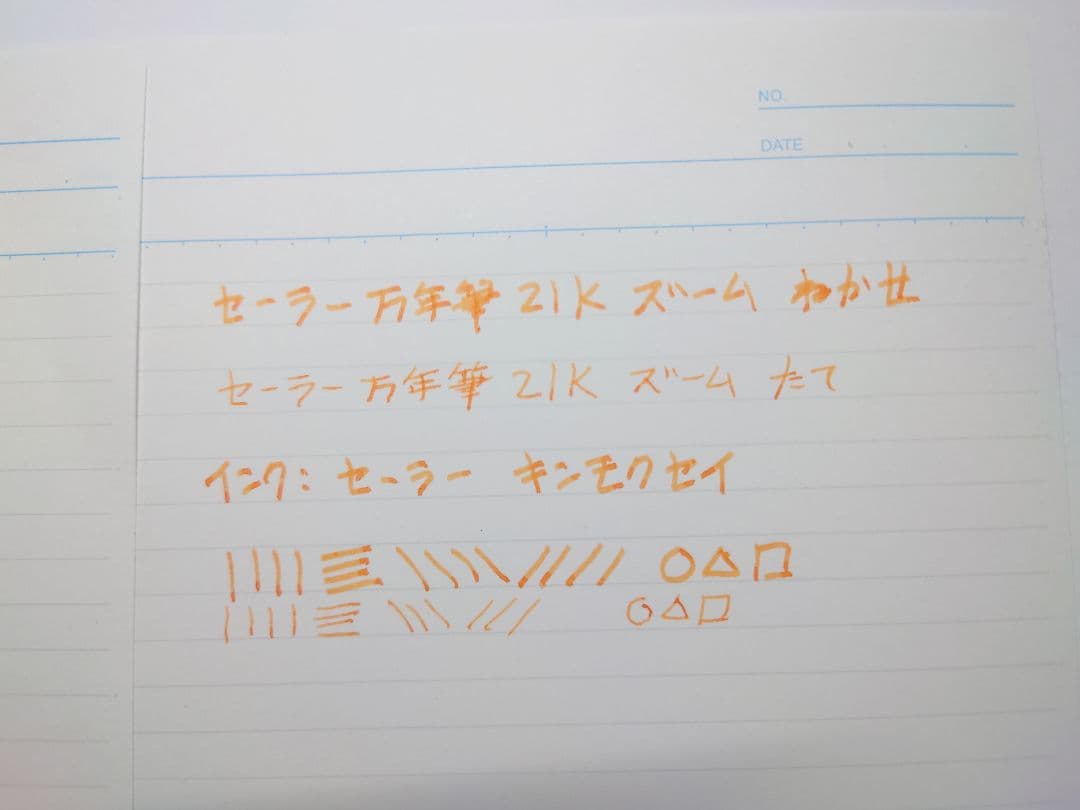 NO.
DATE
セーラー万年筆 21K ズーム ねかせ
セーラー万年筆 21K ズーム たて
インク：セーラー キンモクセイ